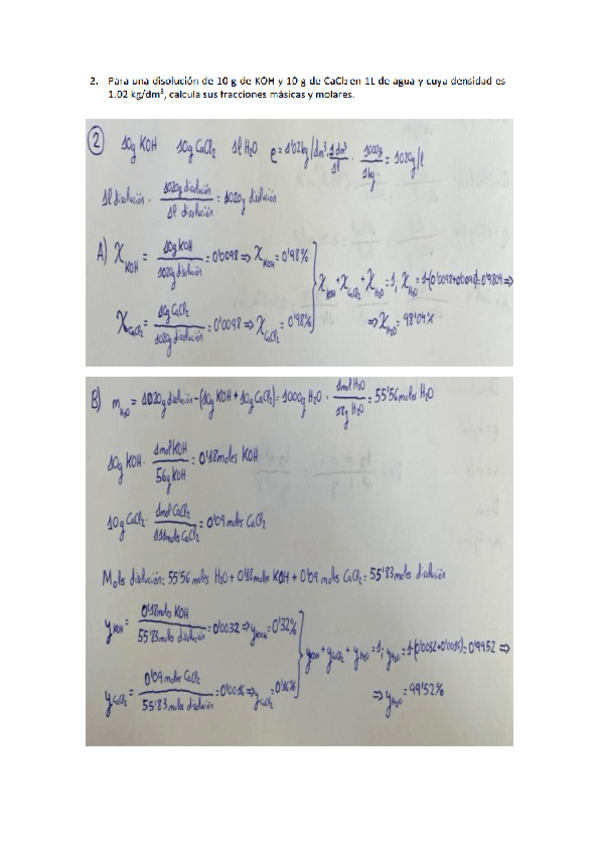 2. Para una disolución de 10 g de KOH y 10 g de CaCl₂ en 1L de agua y cuya densidad es
1.02 kg/dm³, calcula sus fracciones másicas y molares.
② 10g KOH 10g CaCl₂ 1l H₂O ρ = 1'02 kg/dm³ · 1 dm³/1l · 1000g/1kg = 1020g/l
1l disolución · 1020g disolución/1l disolución = 1020g disolución
A) X_KOH = 10g KOH/1020g disolución = 0'0098 ⇒ X_KOH = 0'98%
X_KOH + X_CaCl₂ + X_H₂O = 1; X_H₂O = 1-(0'0098+0'0098) = 0'9804 ⇒
X_CaCl₂ = 10g CaCl₂/1020g disolución = 0'0098 ⇒ X_CaCl₂ = 0'98%
⇒ X_H₂O = 98'04%
B) m_H₂O = 1020g disolución - (10g KOH + 10g CaCl₂) = 1000g H₂O · 1mol H₂O/18g H₂O = 55'56 moles H₂O
10g KOH · 1mol KOH/56g KOH = 0'18 moles KOH
10g CaCl₂ · 1mol CaCl₂/111moles CaCl₂ = 0'09 moles CaCl₂
Moles disolución: 55'56 moles H₂O + 0'18 moles KOH + 0'09 moles CaCl₂ = 55'83 moles disolución
y_KOH = 0'18 moles KOH/55'83 moles disolución = 0'0032 ⇒ y_KOH = 0'32%
y_KOH + y_CaCl₂ + y_H₂O = 1; y_H₂O = 1-(0'0032+0'0016) = 0'9952 ⇒
y_CaCl₂ = 0'09 moles CaCl₂/55'83 moles disolución = 0'0016 ⇒ y_CaCl₂ = 0'16%
⇒ y_H₂O = 99'52%